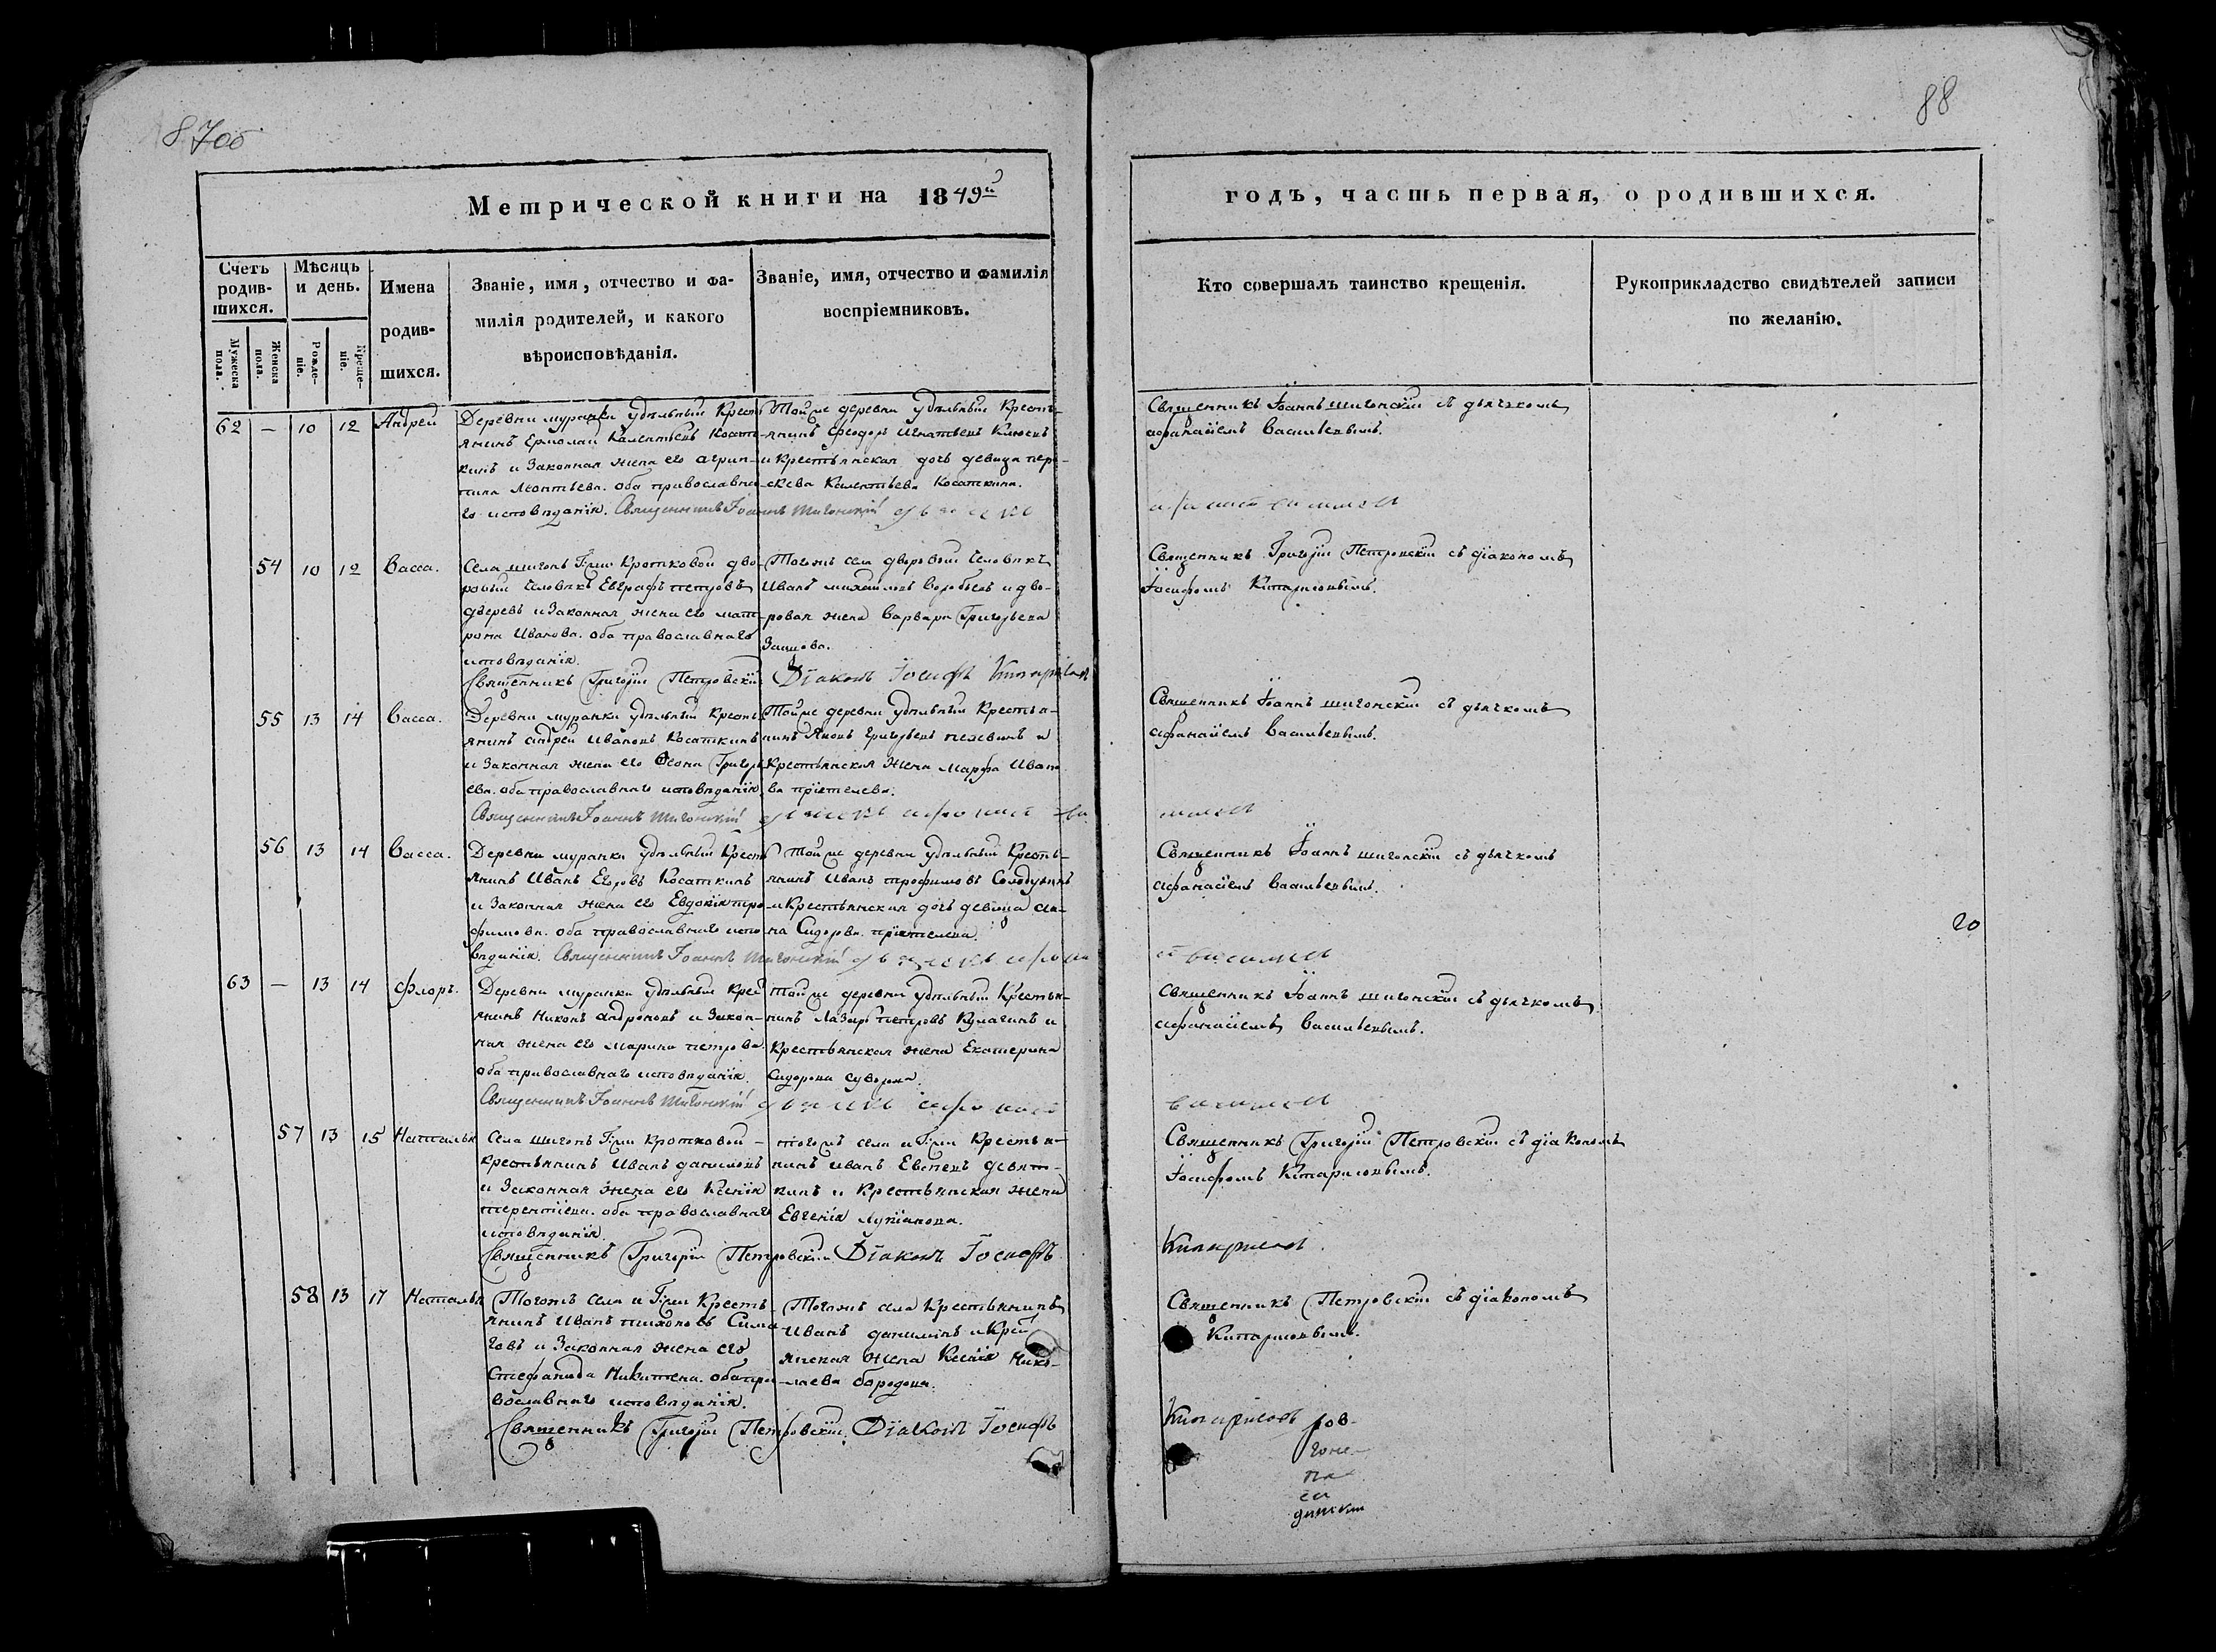 87об
88
Метрической книги на 1849й
годъ, часть первая, о родившихся.
Счетъ родив-шихся.
Мѣсяцъ и день.
Имена родив-шихся.
Званіе, имя, отчество и фа-
милія родителей, и какого
вѣроисповѣданія.
Званіе, имя, отчество и фамилія
воспріемниковъ.
Кто совершалъ таинство крещенія.
Рукоприкладство свидѣтелей записи
по желанію.
Мужеска пола.
Женска пола.
Рожде-ніе.
Креще-ніе.
62 — 10 12 Андрей
Деревни муранки удѣльный Кресть
янинъ Ермолай Калентьевъ Косат
кинъ и Законная жена его агрип-
пина Леонтьева. оба православна
го исповѣданія. Священникъ Іоаннъ Шигонскій
Тойже деревни удѣльный Кресть-
янинъ Феодоръ Игнатьевъ Клюевъ
и Крестьянская дочь девица пера-
скева Калентьева Косаткина.
Священникъ Іоаннъ шигонскій съ дьячкомъ
афанасіемъ Васильевымъ.
54 10 12 Васса.
Села шигонъ Г:жи Кротковой дво-
ровый Человѣкъ Евграфъ петровъ
и Законная жена его мат-
рона Иванова. оба православнаго
исповѣданія.
Священникъ Григорій Петровскій
Тогожъ села дворовый Человѣкъ
Иванъ михайловъ Воробьевъ и дво-
ровая жена Варвара Григорьева
Діаконъ Іосифъ Кипарисовъ
Священникъ Григорій Петровскій съ діакономъ
Іосифомъ Кипарисовымъ.
55 13 14 Васса.
Деревни муранки удѣльный Кресть
янинъ андрей Ивановъ Косаткинъ
и Законная жена его Григорь
ева. оба православнаго исповѣданія.
Священникъ Іоаннъ Шигонскій
Тойже деревни удѣльный Крестья-
нинъ Яковъ григорьевъ и
Крестьянская жена Марфа Ивано
ва пріятелева.
Священникъ Іоаннъ шигонскій съ дьячкомъ
афанасіемъ Васильевымъ.
56 13 14 Васса.
Деревни муранки удѣльный Кресть
янинъ Иванъ Егоровъ Косаткинъ
и Законная жена его Евдокія тро-
фимова. оба православнаго испо-
вѣданія. Священникъ Іоаннъ Шигонскій
Тойже деревни удѣльный Кресть-
янинъ Иванъ трофимовъ
и Крестьянская дочь девица ан-
на Сидорова пріятелева.
Священникъ Іоаннъ шигонскій съ дьячкомъ
афанасіемъ Васильевымъ.
20
63 — 13 14 Флоръ.
Деревни муранки удѣльный Крес
янинъ Никонъ андроновъ и Закон-
ная жена его Марина петрова.
оба православнаго исповѣданія.
Священникъ Іоаннъ Шигонскій
Тойже деревни удѣльный Крестья-
нинъ Лазарь петровъ Кулагинъ и
Крестьянская жена Екатерина
Сидорова суворова.
Священникъ Іоаннъ шигонскій съ дьячкомъ
афанасіемъ Васильевымъ.
57 13 15 Наталья
Села шигонъ Г:жи Кротковой -
крестьянинъ Иванъ даниловъ
и Законная жена его Ксенія
терентіева. оба православнаго
исповѣданія.
Священникъ Григорій Петровскій
тогожъ села и Г:жи Крестья-
нинъ иванъ Евсеевъ девят-
кинъ и Крестьянская жена
Евгенія Лукіанова.
Діаконъ Іосифъ
Священникъ Григорій Петровскій съ діакономъ
Іосифомъ Кипарисовымъ.
Кипарисовъ.
58 13 17 Наталья
Тогожъ села и Г:жи Кресть-
янинъ Иванъ тихоновъ
и Законная жена его
Стефанида Никитина. оба пра-
вославнаго исповѣданія.
Священникъ Григорій Петровскій.
Тогожъ села Крестьянинъ
Иванъ данилинъ и Крес
янская жена Ксенія Нико-
лаева бородина.
Діаконъ Іосифъ
Священникъ Петровскій съ діакономъ
Кипарисовымъ.
Кипарисовъ